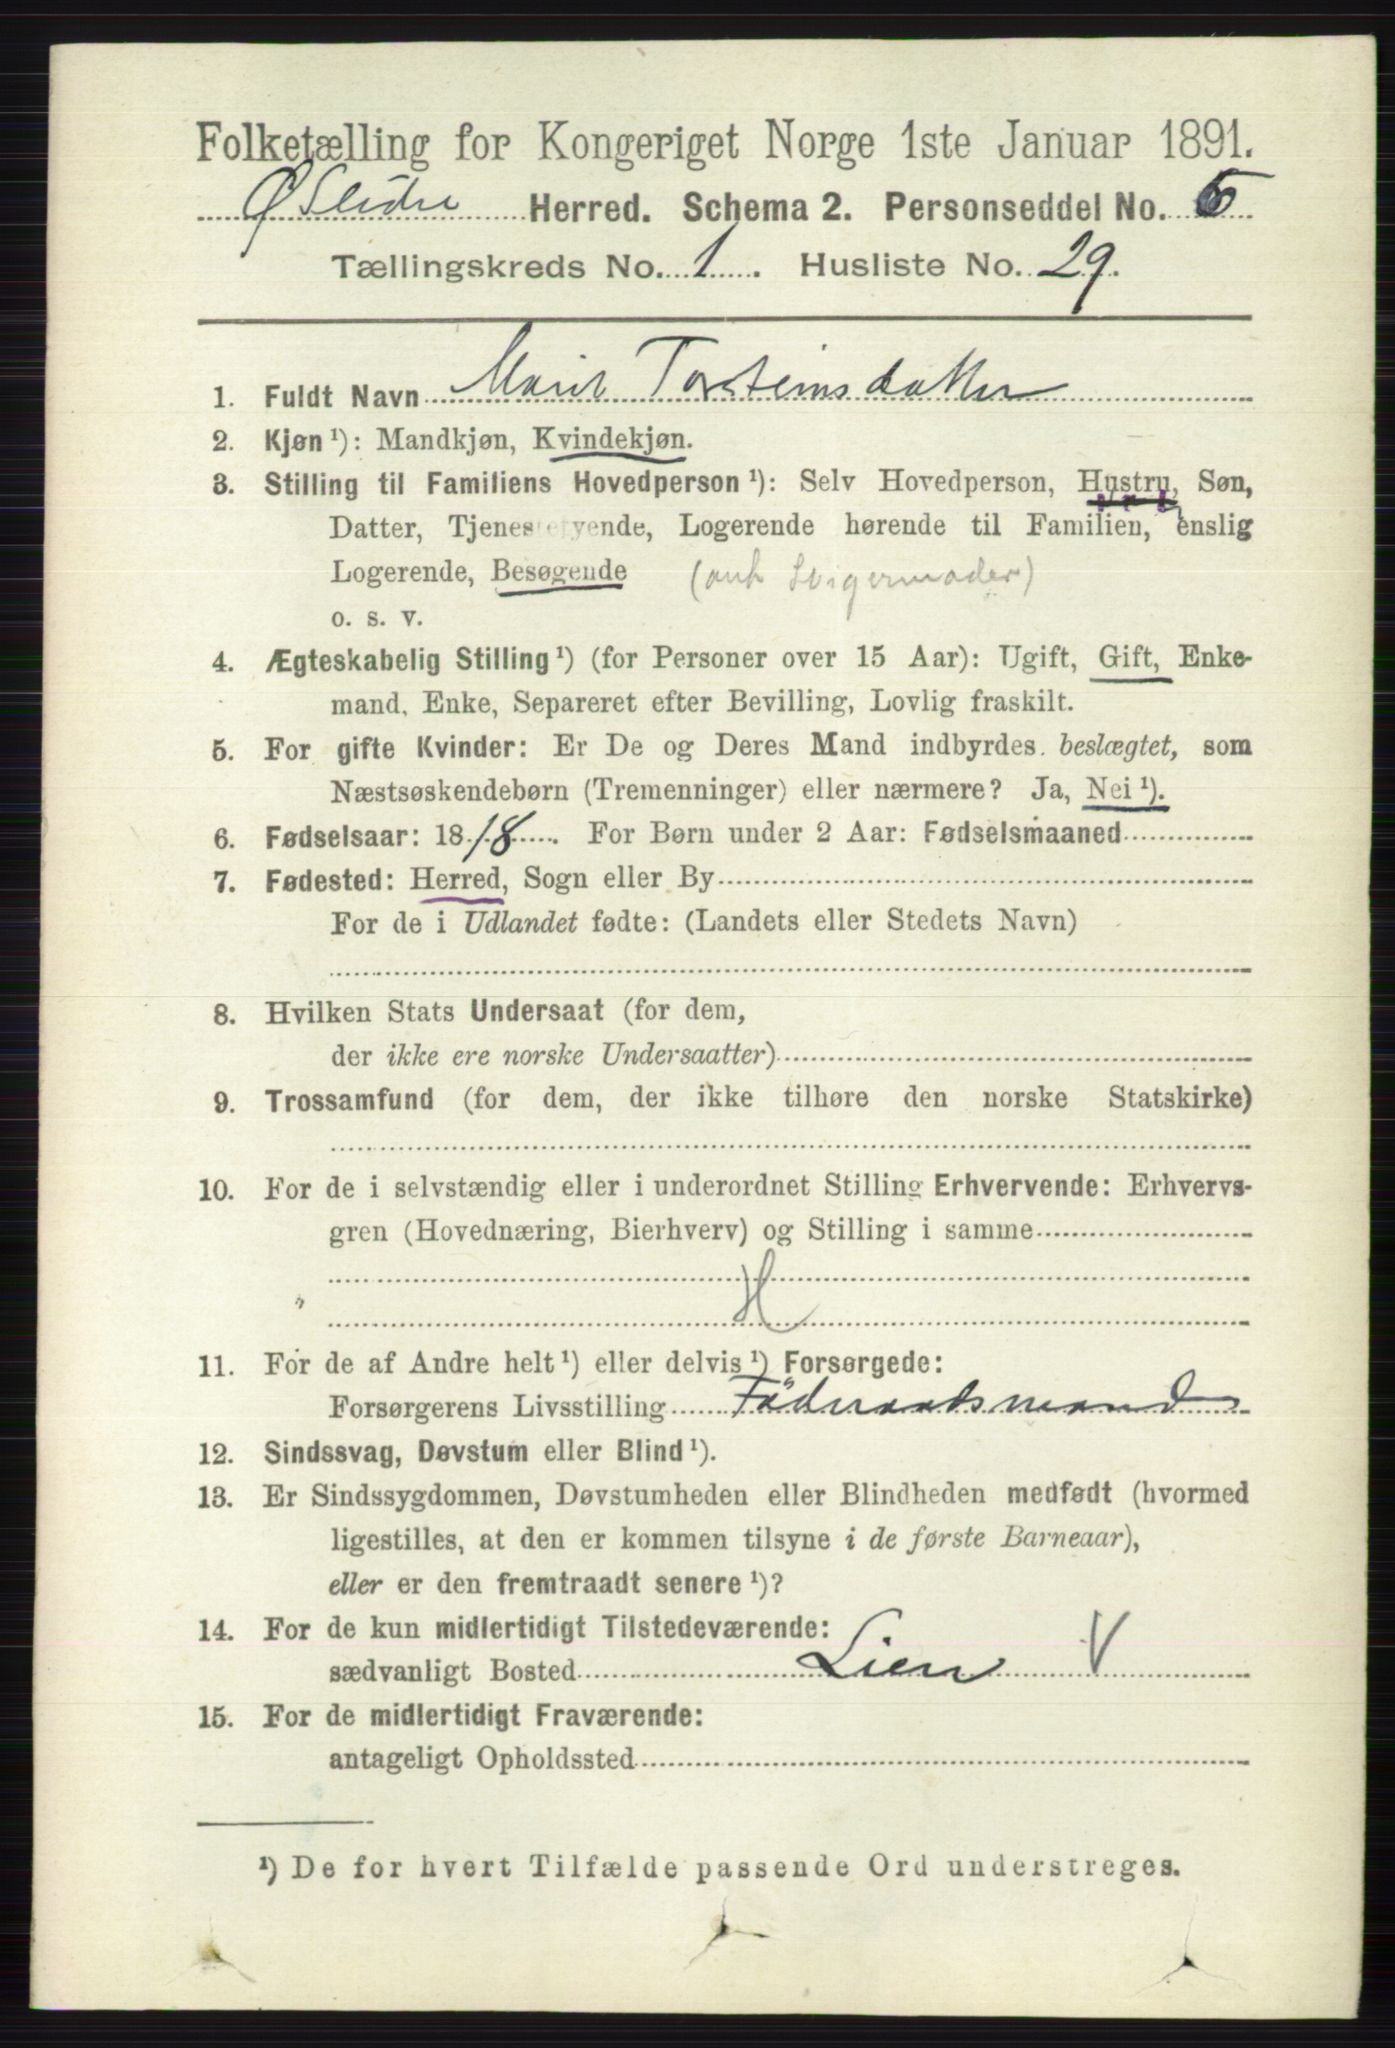 Folketælling for Kongeriget Norge 1ste Januar 1891.
Ø Slidre Herred. Schema 2. Personseddel No. 5
Tællingskreds No. 1. Husliste No. 29.
1. Fuldt Navn Marit Torsteinsdatter
2. Kjøn ¹): Mandkjøn, Kvindekjøn.
3. Stilling til Familiens Hovedperson ¹): Selv Hovedperson, Hustru, Søn,
Datter, Tjenestetyende, Logerende hørende til Familien, enslig
Logerende, Besøgende (ant Svigermoder)
o. s. v.
4. Ægteskabelig Stilling ¹) (for Personer over 15 Aar): Ugift, Gift, Enke-
mand, Enke, Separeret efter Bevilling, Lovlig fraskilt.
5. For gifte Kvinder: Er De og Deres Mand indbyrdes beslægtet, som
Næstsøskendebørn (Tremenninger) eller nærmere? Ja, Nei ¹).
6. Fødselsaar: 1818. For Børn under 2 Aar: Fødselsmaaned
7. Fødested: Herred, Sogn eller By
For de i Udlandet fødte: (Landets eller Stedets Navn)
8. Hvilken Stats Undersaat (for dem,
der ikke ere norske Undersaatter)
9. Trossamfund (for dem, der ikke tilhøre den norske Statskirke)
10. For de i selvstændig eller i underordnet Stilling Erhvervende: Erhvervs-
gren (Hovednæring, Bierhverv) og Stilling i samme
H
"
11. For de af Andre helt ¹) eller delvis ¹) Forsørgede:
Forsørgerens Livsstilling Föderaadsmand
12. Sindssvag, Døvstum eller Blind ¹).
13. Er Sindssygdommen, Døvstumheden eller Blindheden medfødt (hvormed
ligestilles, at den er kommen tilsyne i de første Barneaar),
eller er den fremtraadt senere ¹)?
14. For de kun midlertidigt Tilstedeværende:
sædvanligt Bosted Lien V
15. For de midlertidigt Fraværende:
antageligt Opholdssted
¹) De for hvert Tilfælde passende Ord understreges.